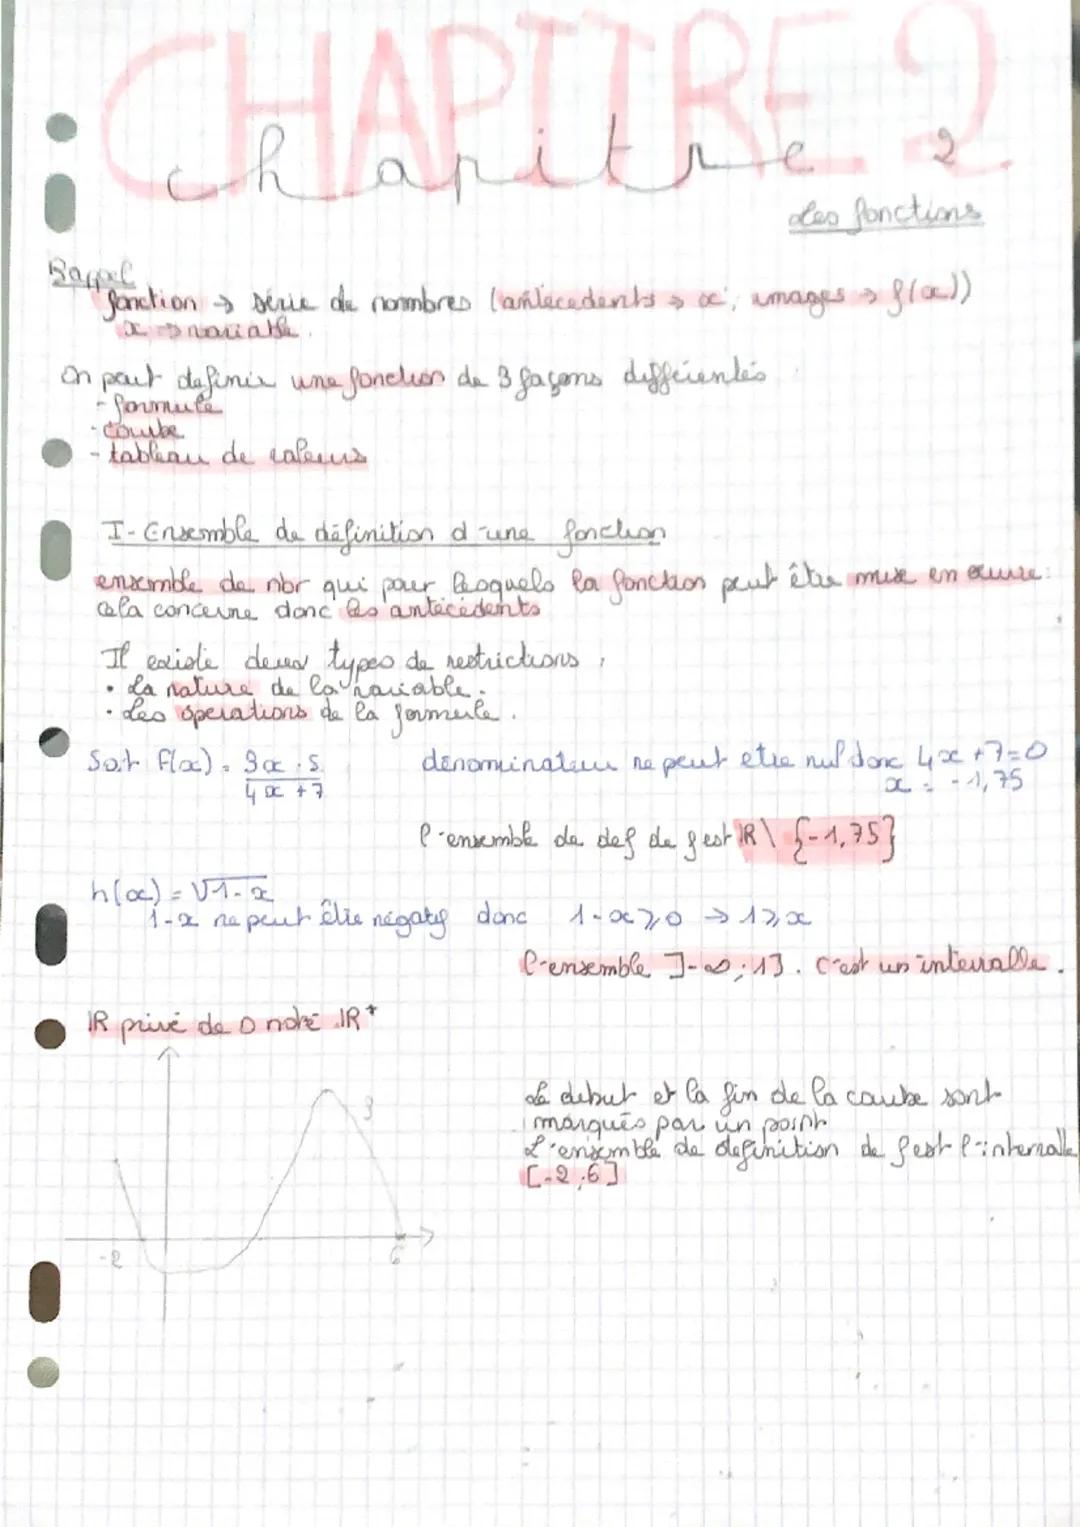 CHAPITRE 2
chapitre 2
Les fonctions
Rappel
fonction → série de nombres (antécedents → x ; images → f(x))
x → variable.
On peut definir une fonction de 3 façons différentes
- formule
- courbe
- tableau de valeurs
I- Ensemble de définition d'une fonction
ensemble de nbr qui pour lesquels la fonction peut être mise en œuvre :
cela concerne donc les antécédents
Il existe deux types de restrictions :
• La nature de la variable.
• Les opérations de la formule.
Soit f(x) = 3x - 5 / 4x + 7
dénominateur ne peut etre nul donc 4x + 7 = 0
x = -1,75
l'ensemble de def de f est ℝ \ {-1,75}
h(x) = √1-x
1-x ne peut être négatif donc 1-x ≥ 0 → 1 ≥ x
l'ensemble ]-∞ ; 1]. C'est un intervalle.
ℝ privé de 0 noté ℝ*
Le debut et la fin de la courbe sont
marqués par un point
L'ensemble de definition de f est l'intervalle
[-2 ; 6]
-2
6